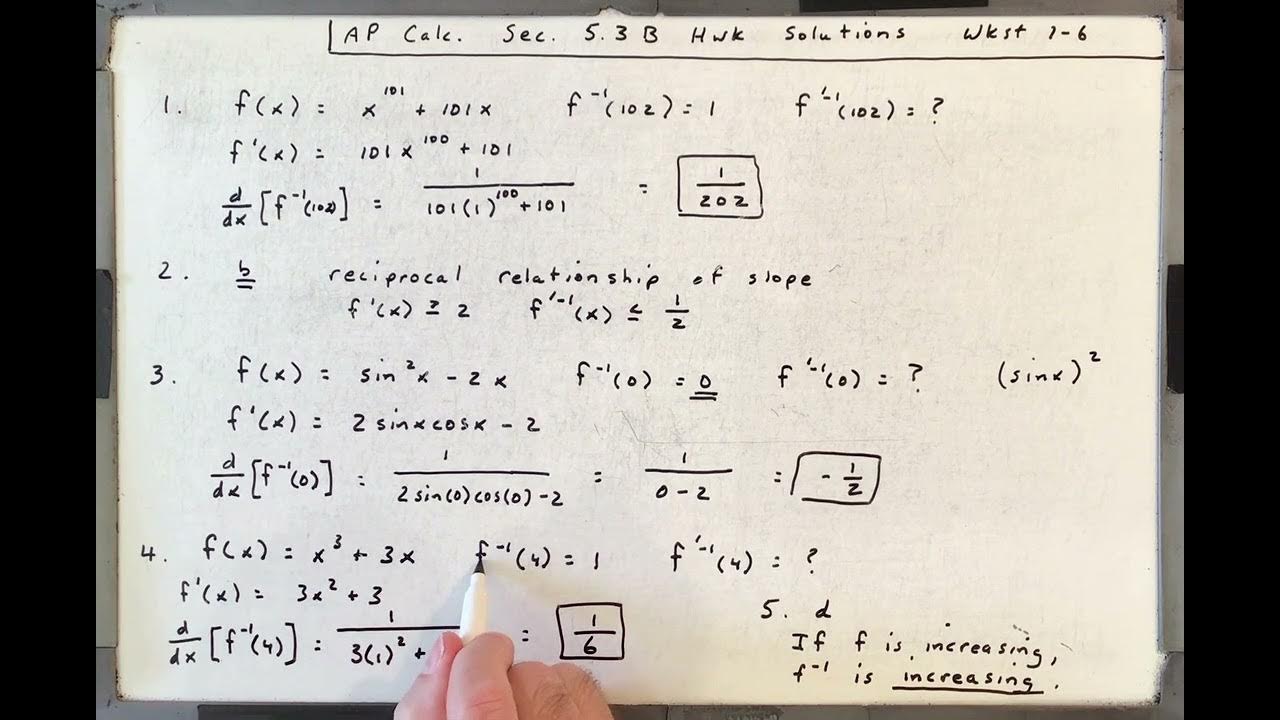 AP Calc. Sec. 5.3 B Hwk Solutions Wkst 1-6
1. f(x) = x^101 + 101x f^-1(102) = 1 f'^-1(102) = ?
f'(x) = 101x^100 + 101
d/dx [f^-1(102)] = 1/(101(1)^100 + 101) = 1/202
2. b reciprocal relationship of slope
f'(x) ≥ 2 f'^-1(x) ≤ 1/2
3. f(x) = sin^2x - 2x f^-1(0) = 0 f'^-1(0) = ? (sinx)^2
f'(x) = 2 sinxcosx - 2
d/dx [f^-1(0)] = 1/(2sin(0)cos(0)-2) = 1/(0-2) = -1/2
4. f(x) = x^3 + 3x f^-1(4) = 1 f'^-1(4) = ?
f'(x) = 3x^2 + 3
d/dx [f^-1(4)] = 1/(3(1)^2 + = 1/6
5. d
If f is increasing,
f^-1 is increasing.